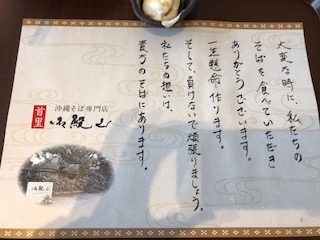 大変な時に、私たちの
そばを食べていただき
ありがとうございます。
一生懸命作ります。
そして、負けないで頑張りましょう。
私たちの想いは、
貴方のそばにあります。
沖縄そば専門店
首里
御殿山
御殿山